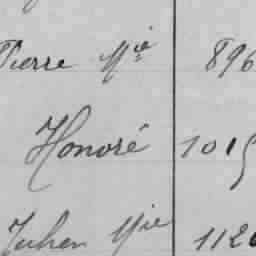 Pierre Mie 896
Honoré 1015
Julien Mie 112